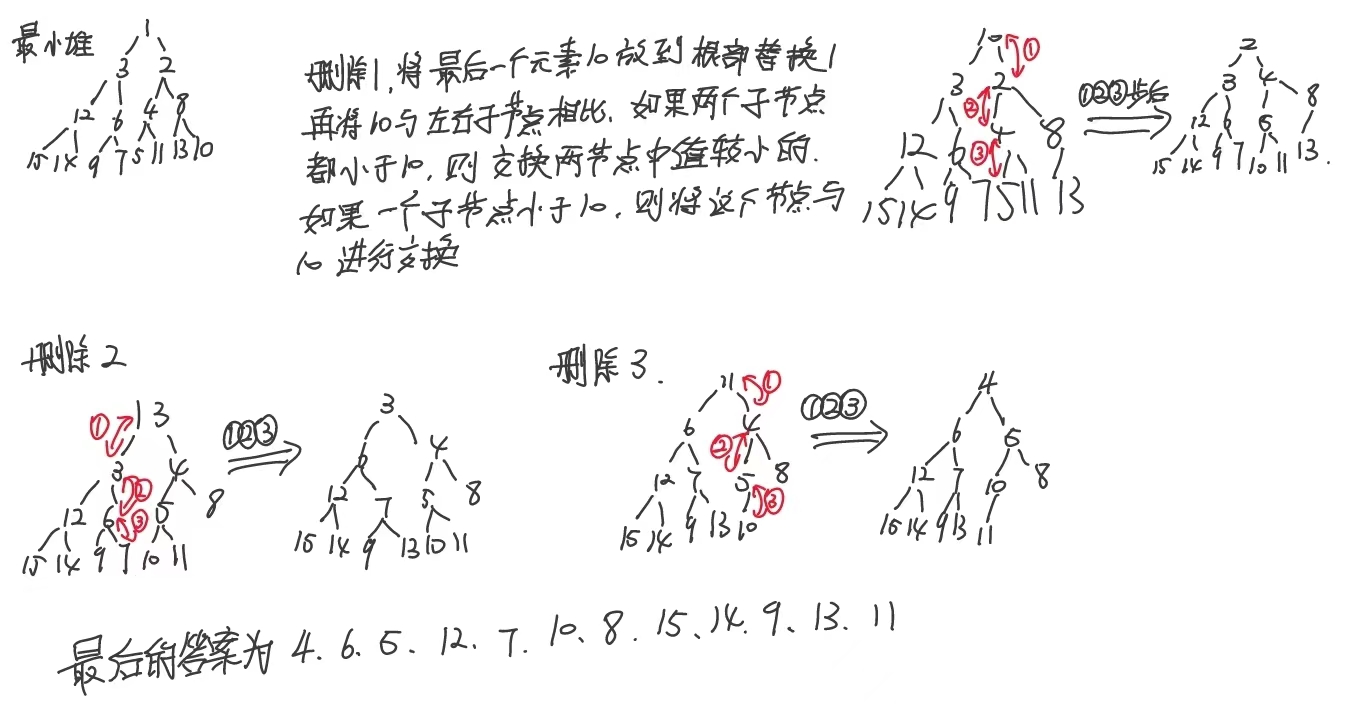 最小堆
1
3 2
12 6 4 8
15 14 9 7 5 11 13 10
删除1,将最后一个元素10放到根部替换1
再将10与左右子节点相比,如果两个子节点
都小于10,则交换两节点中值较小的.
如果一个子节点小于10,则将这个节点与
10进行交换
10 ①
3 2
② 4 8
12 6 ③
15 14 9 7 5 11 13
①②③步后
2
3 4 8
12 6 5
15 14 9 7 10 11 13.
删除2
① 13
3 ② 4
12 6 ③ 5 8
15 14 9 7 10 11
①②③
3
6 4
12 7 5 8
15 14 9 13 10 11
删除3.
11 ①
6 ② 4
12 7 5 8
15 14 9 13 10 ③
①②③
4
6 5
12 7 10 8
15 14 9 13 11
最后的答案为 4、6、5、12、7、10、8、15、14、9、13、11